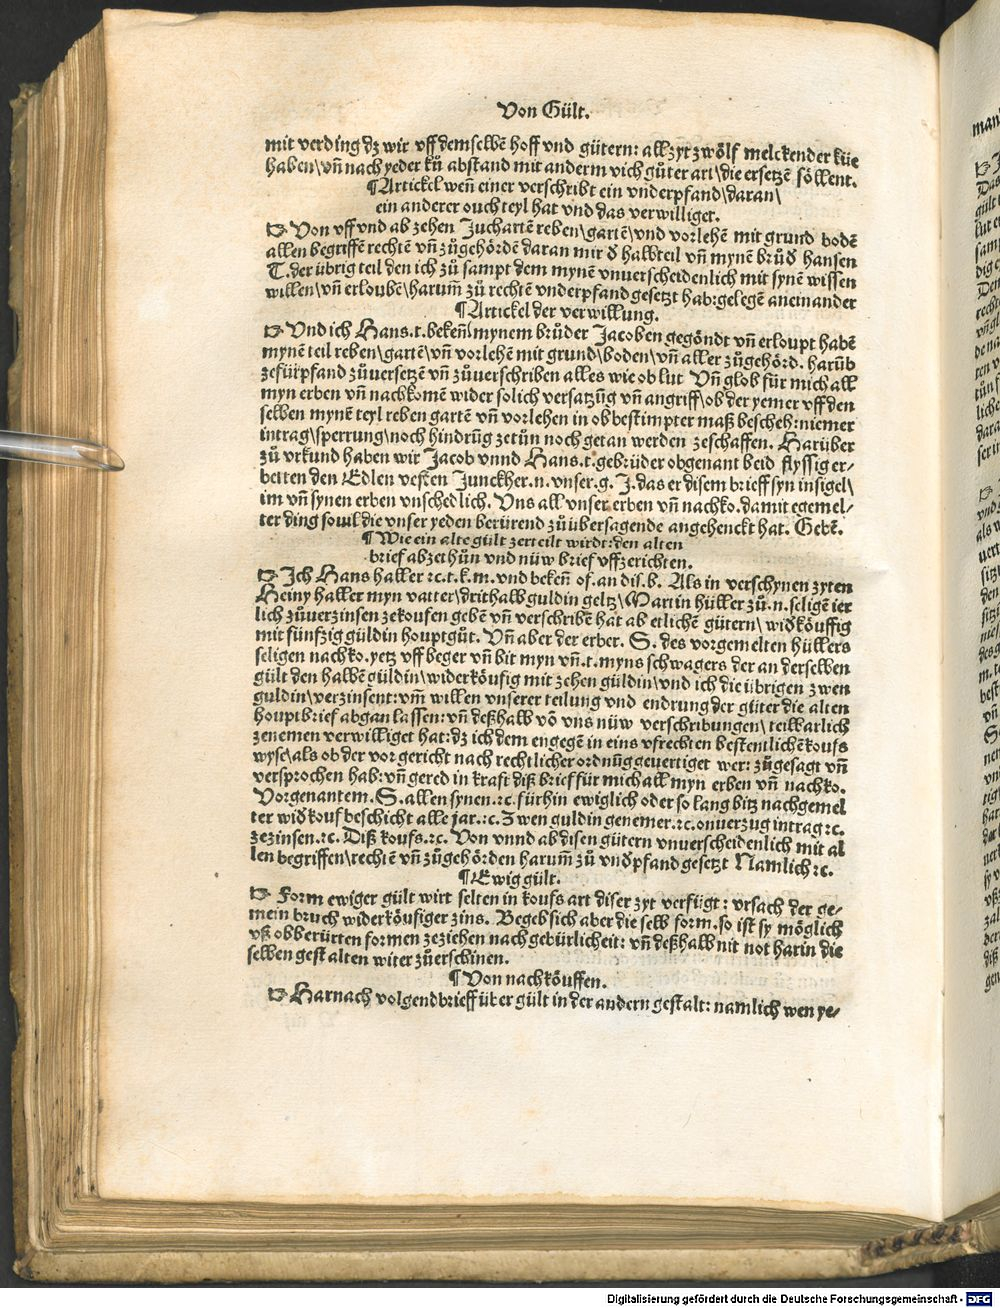 Von Gült.
mit verding dz wir vff demselbē hoff vnd gütern: all zyt zwölf melckender küe
haben\vn̄ nach yeder ků abstand mit anderm vich gůter art\die ersetzē söllent.
¶Artickel wen̄ einer verschribt ein vnderpfand\daran\
ein anderer ouch teyl hat vnd das verwilliget.
Von vff vnd ab zehen Jucharten reben\gartē\vnd vorlehē mit grund bodē
allen begriffē rechtē vn̄ zůgehördē daran mir d̕ halbteil vn̄ mynē brůd̕ hansen
T. der übrig teil den ich zů sampt dem mynē vnuerscheidenlich mit synē wissen
willen\vn̄ erloubē\harum̄ zů rechtē vnderpfand gesetzt hab: gelegē aneinander
¶Artickel der verwillung.
Vnd ich Hans.t.beken̄\mynem brůder Jacoben gegöndt vn̄ erloupt habē
mynē teil reben\gartē\vn̄ vorlehē mit grund\boden\vn̄ aller zůgehörd. harūb
zefürpfand zůuersetzē vn̄ zůuerschriben alles wie ob lut Vn̄ glob für mich all
myn erben vn̄ nachkomē wider solich versatzūg vn̄ angriff\ob der yemer vff den
selben mynē teyl reben gartē vn̄ vorlehen in ob bestimpter maß bescheh: niemer
intrag\sperrung\noch hindrūg zetůn noch getan werden zeschaffen. Harüber
zů vrkund haben wir Jacob vnnd Hans.t.gebrüder obgenant beid flyssig er-
betten den Edlen vesten Junckher.n.vnser.g.J.das er disem brieff syn insigel\
im vn̄ synen erben vnschedlich. Vns all vnser erben vn̄ nachko.damit egemel-
ter ding souil die vnser yeden berürend zůübersagende angehenckt hat. Gebē.
¶Wie ein alte gült zerteilt wirdt: den alten
brief abzethůn vnd nüw brief vffzerichten.
Ich Hans haller ꝛc.t.k.m.vnd beken̄ of.an dis.b. Als in verschynen zyten
Heiny haller myn vatter\drithalb guldin geltz\Martin hüller zů.n.seligē ier
lich zůuerzinsen zekoufen gebē vn̄ verschribē hat ab etlichē gütern\ wid̕köuffig
mit fünfzig güldin houptgůt. Vn̄ aber der erber. S. des vorgemelten hüllers
seligen nachko.yetz vff beger vn̄ bit myn vn̄.t.myns schwagers der an derselben
gült den halbē güldin\widerköufig mit zehen güldin\vnd ich die übrigen zwen
guldin\verzinsent: vm̄ willen vnserer teilung vnd endrung der güter die alten
houptbrief abgan lassen: vn̄ deßhalb vō vns nüw verschribungen\ teilbarlich
zenemen verwilliget hat: dz ich dem engegē in eins vfrechten bestentlichē koufs
wyse\als ob der vor gericht nach rechtlicher ordnūg geuertiget wer: zůgesagt vn̄
versprochen hab: vn̄ gered in kraft diß brief für mich all myn erben vn̄ nachko.
Vorgenantem. S. allen synen.ꝛc.fürhin ewiglich oder so lang bitz nachgemel
ter wid̕kouf beschicht alle jar.ꝛc. Zwen guldin genemer.ꝛc.on verzug intrag ꝛc.
zezinsen.ꝛc. Diß koufs.ꝛc. Von vnnd ab disen gütern vnuerscheidenlich mit al
len begriffen\rechtē vn̄ zůgehörden harum̄ zů vnd̕pfand gesetzt Namlich ꝛc.
¶Ewig gült.
Form ewiger gült wirt selten in koufs art diser zyt verfügt: vrsach der ge-
mein bruch widerköufiger zins. Begeb sich aber die selb form. so ist sy möglich
vß ob berürten formen zeziehen nach gebürlicheit: vn̄ deßhalb nit not harin die
selben gestalten witer zůerschinen.
¶Von nachköuffen.
Harnach volgend brieff über gült in der andern gestalt: namlich wen ye-
Digitalisierung gefördert durch die Deutsche Forschungsgemeinschaft - DFG